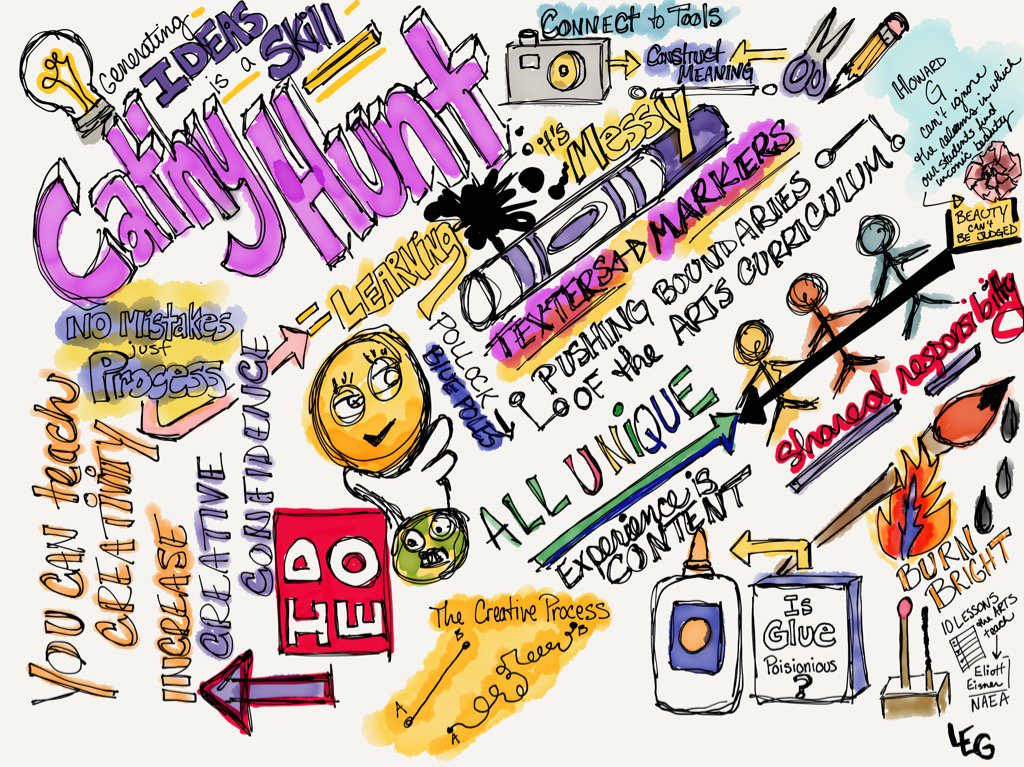 Generating
IDEAS
is a
SKILL
Cathy Hunt
CONNECT to TOOLS
CONSTRUCT
MEANING
HOWARD
G
can't ignore
the realms in which
our students find
uncanny beauty
BEAUTY
CAN'T
BE JUDGED
it's
Messy
= LEARNING
TEXTERS → MARKERS
POLLOCK
BLUE POLES
PUSHING BOUNDARIES
OF the ARTS CURRICULUM
NO Mistakes
just
Process
YOU CAN teach
CREATIVITY
INCREASE
CREATIVE
CONFIDENCE
ALL UNIQUE
Experience is
CONTENT
shared responsibilty
The Creative Process
A
B
A
B
Is
Glue
Poisionious
?
BURN
BRIGHT
10 LESSONS
the ARTS
teach
Eliott
Eisner
NAEA
LEG